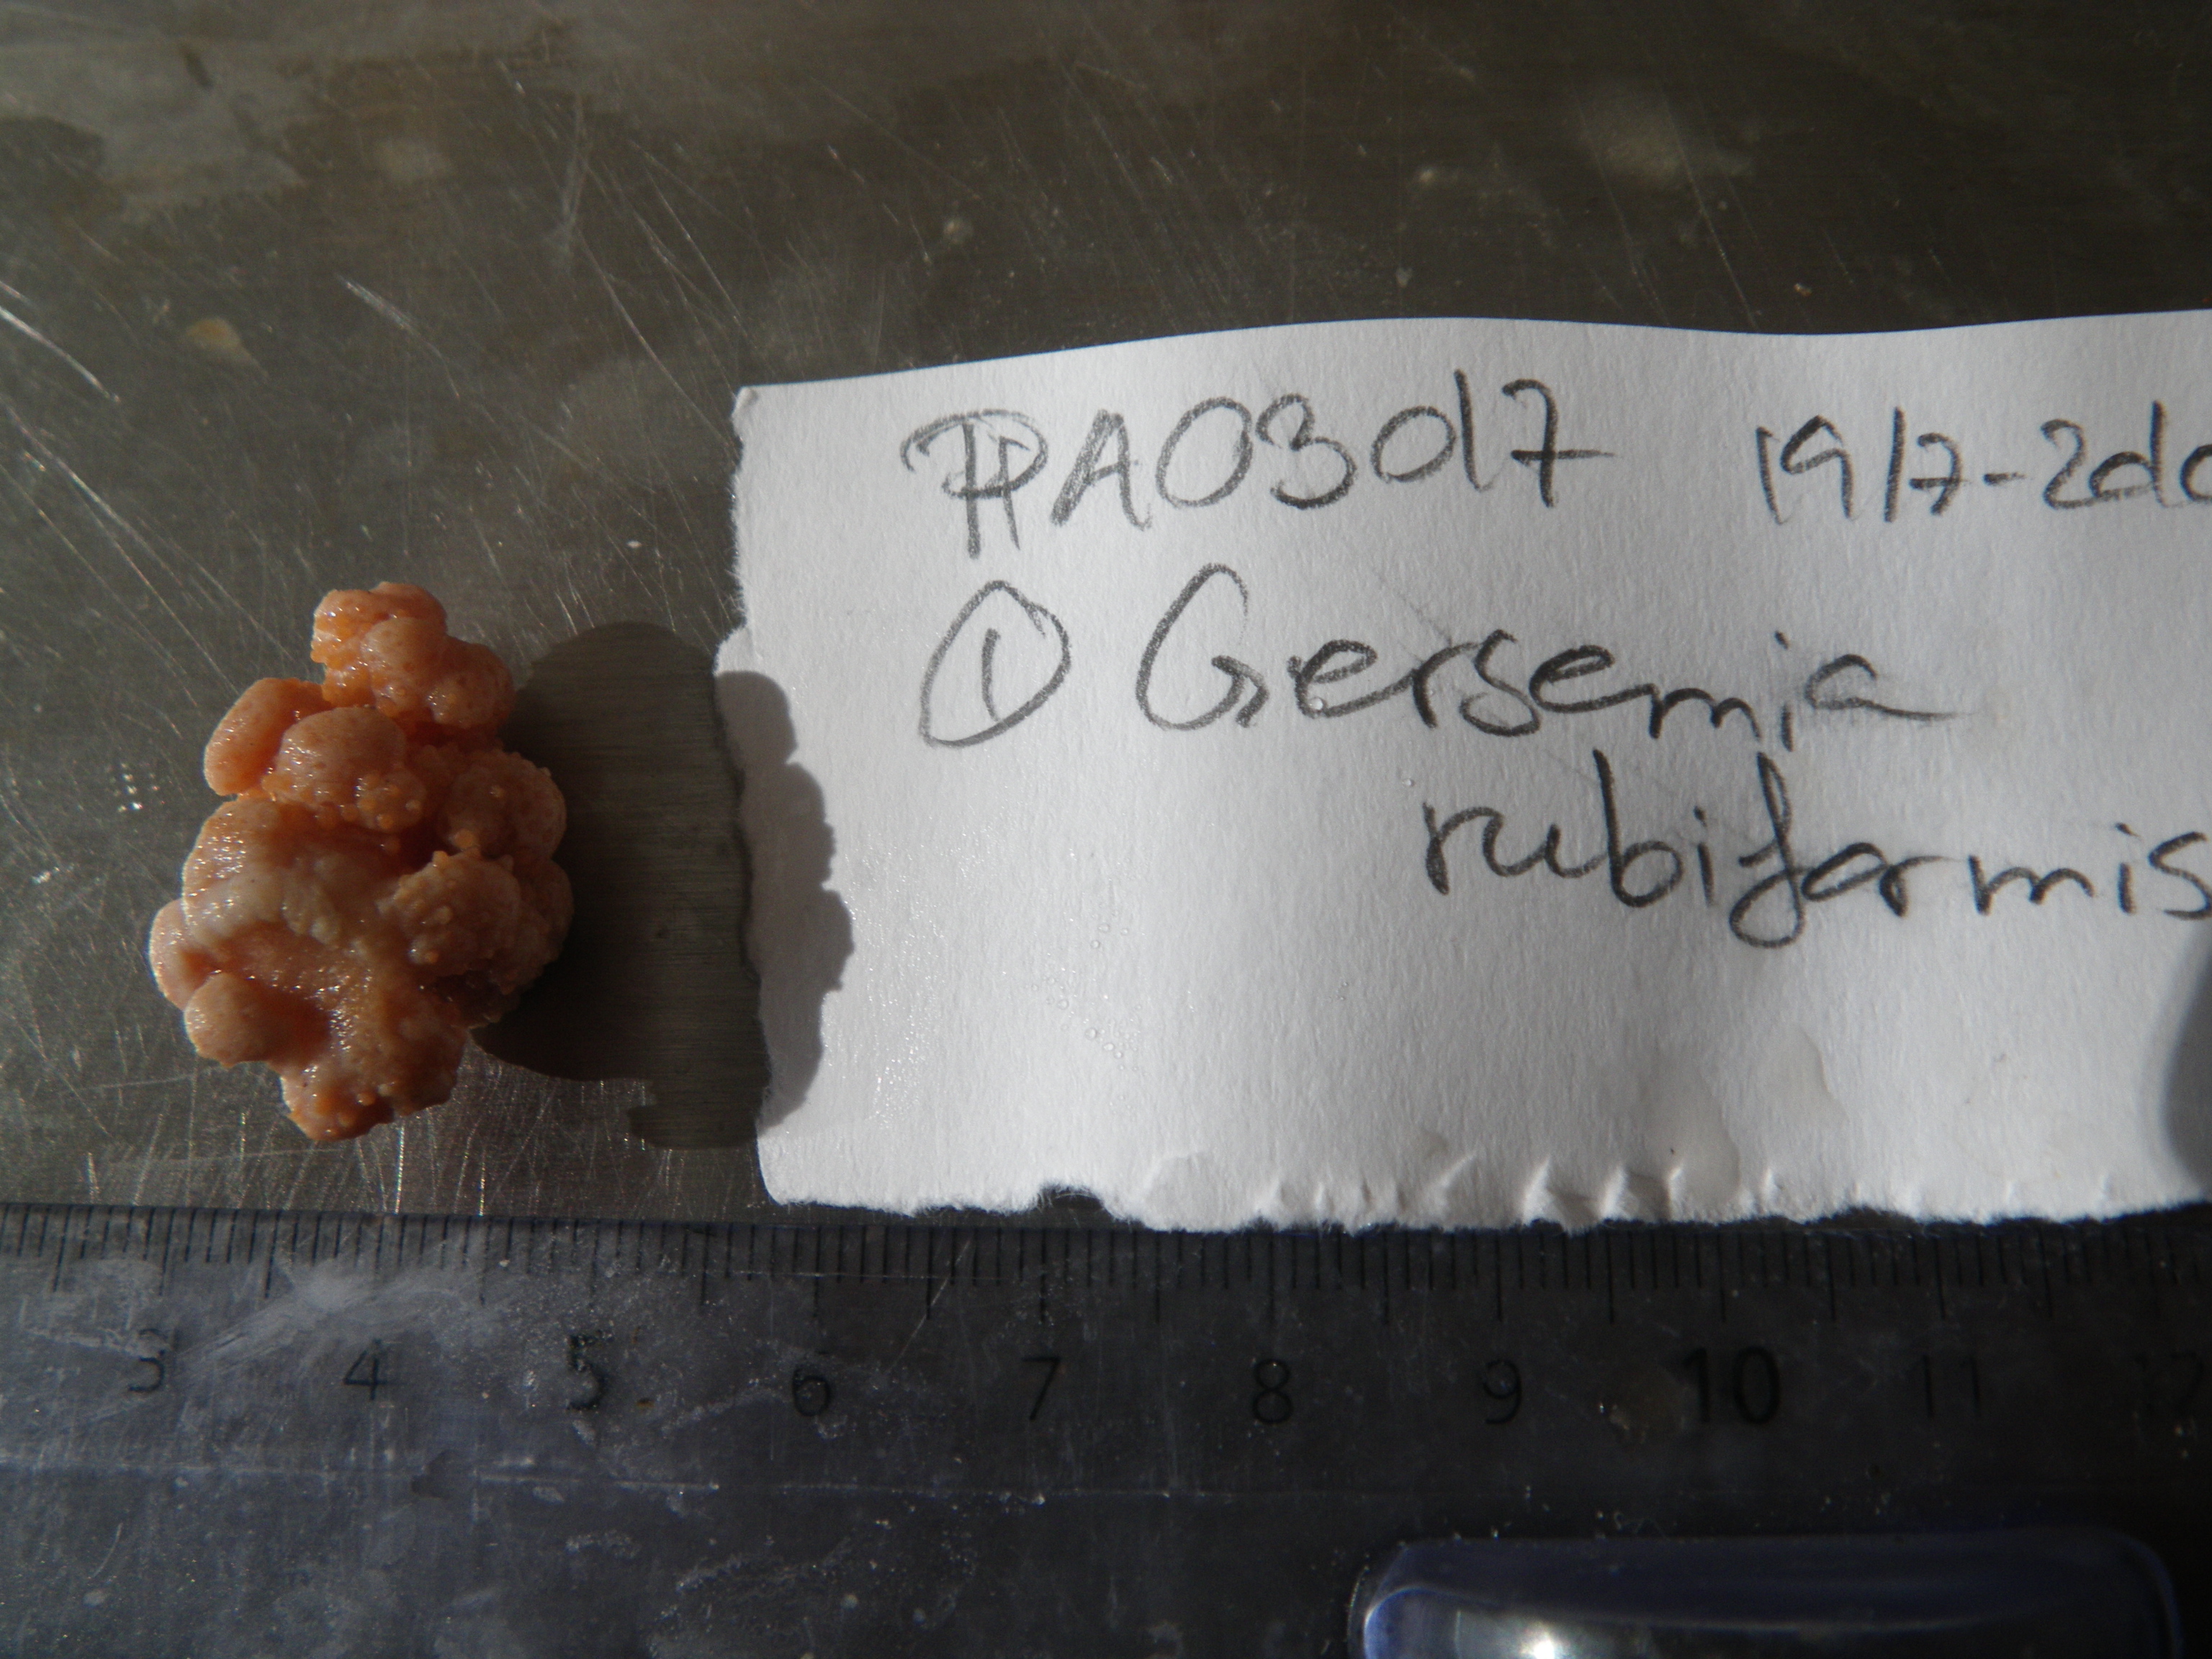 PAA03017 19/7-20
① Gersemia
rubiformis
3 4 5 6 7 8 9 10 11 12